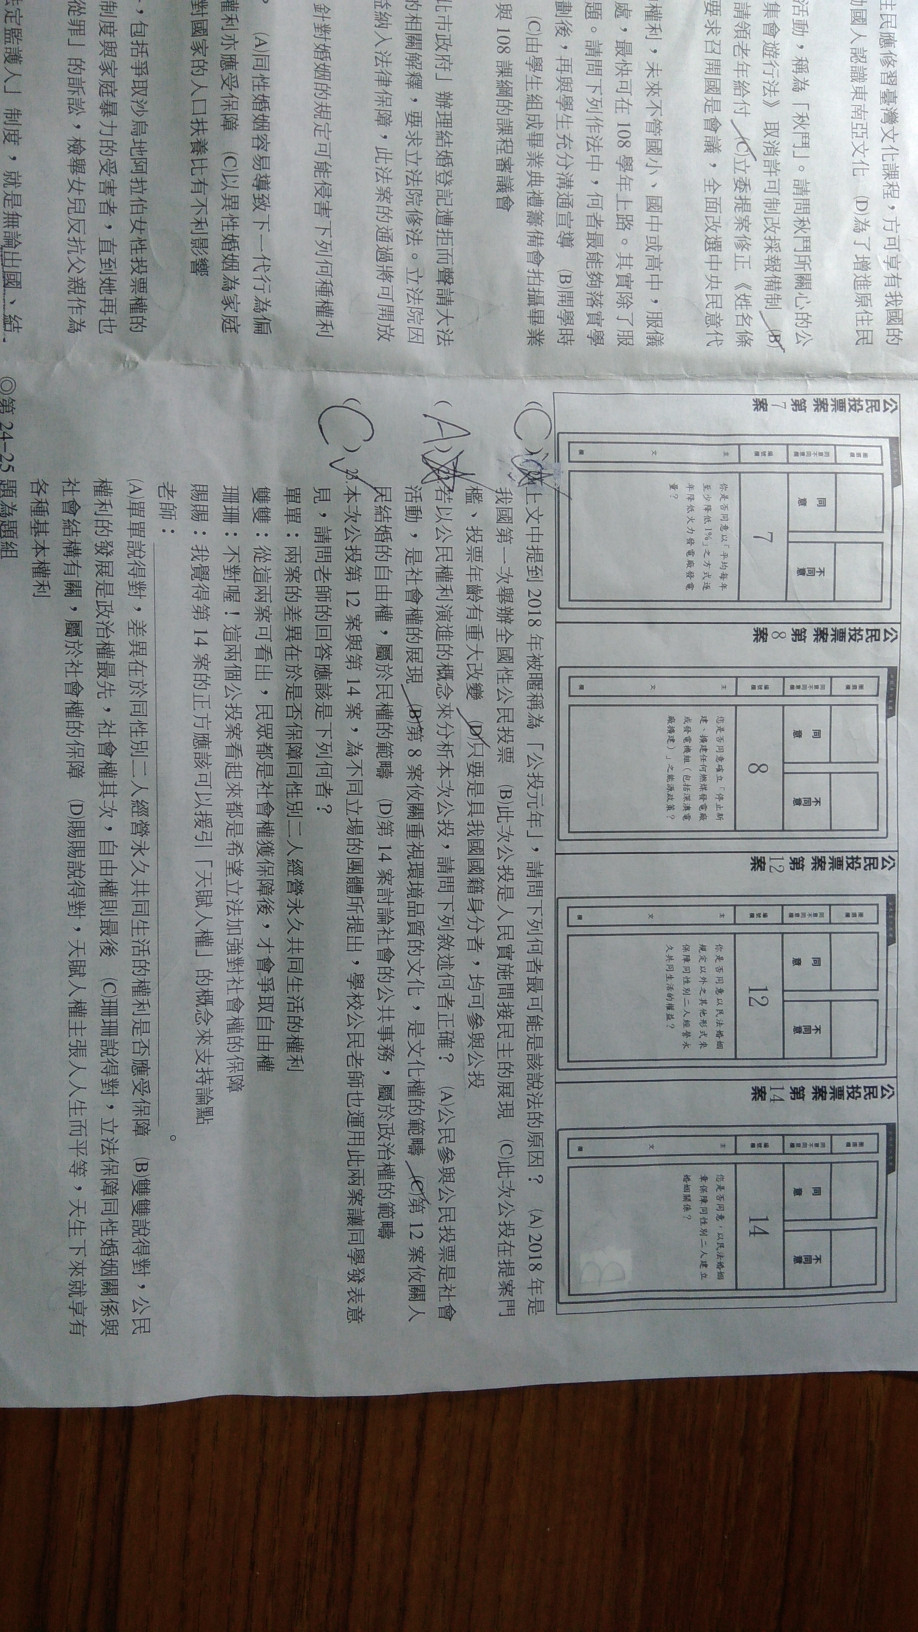 住民應修習臺灣文化課程，方可享有我國的
國人認識東南亞文化　(D)為了增進原住民
活動，稱為「秋鬥」。請問秋鬥所關心的公
集會遊行法》取消許可制改採報備制　(B)
請領老年給付　(C)立委提案修正《姓名條
要求召開國是會議，全面改選中央民意代
權利，未來不管國小、國中或高中，服儀
處，最快可在 108 學年上路。其實除了服
題。請問下列作法中，何者最能夠落實學
劃後，再與學生充分溝通宣導　(B)開學時
(C)由學生組成畢業典禮籌備會拍攝畢業
與 108 課綱的課程審議會
北市政府」辦理結婚登記遭拒而聲請大法
的相關解釋，要求立法院修法。立法院因
益納入法律保障，此法案的通過將可開放
針對婚姻的規定可能侵害下列何種權利
？　(A)同性婚姻容易導致下一代行為偏
權利亦應受保障　(C)以異性婚姻為家庭
對國家的人口扶養比有不利影響
，包括爭取沙烏地阿拉伯女性投票權的
制度與家庭暴力的受害者，直到她再也
從罪」的訴訟，檢舉女兒反抗父親作為
法定監護人」制度，就是無論出國、結
公民投票案第 7 案
同意
不同意
7
你是否同意以「平均每年
至少降低 1%」之方式逐
年降低火力發電廠發電
量？
公民投票案第 8 案
同意
不同意
8
您是否同意確立「停止新
建、擴建任何燃煤發電廠
或發電機組（包括深澳電
廠擴建）」之能源政策？
公民投票案第 12 案
同意
不同意
12
你是否同意以民法婚姻
規定以外之其他形式來
保障同性別二人經營永
久共同生活的權益？
公民投票案第 14 案
同意
不同意
14
您是否同意，以民法婚姻
章保障同性別二人建立
婚姻關係？
B
(C) 上文中提到 2018 年被暱稱為「公投元年」，請問下列何者最可能是該說法的原因？　(A) 2018 年是
我國第一次舉辦全國性公民投票　(B)此次公投是人民實施間接民主的展現　(C)此次公投在提案門
檻、投票年齡有重大改變　(D)只要是具我國國籍身分者，均可參與公投
(A) 若以公民權利演進的概念來分析本次公投，請問下列敘述何者正確？　(A)公民參與公民投票是社會
活動，是社會權的展現　(B)第 8 案攸關重視環境品質的文化，是文化權的範疇　(C)第 12 案攸關人
民結婚的自由權，屬於民權的範疇　(D)第 14 案討論社會的公共事務，屬於政治權的範疇
(C) 23.本次公投第 12 案與第 14 案，為不同立場的團體所提出，學校公民老師也運用此兩案讓同學發表意
見，請問老師的回答應該是下列何者？
單單：兩案的差異在於是否保障同性別二人經營永久共同生活的權利
雙雙：從這兩案可看出，民眾都是社會權獲保障後，才會爭取自由權
珊珊：不對喔！這兩個公投案看起來都是希望立法加強對社會權的保障
賜賜：我覺得第 14 案的正方應該可以援引「天賦人權」的概念來支持論點
老師：　　　　　　　　。
(A)單單說得對，差異在於同性別二人經營永久共同生活的權利是否應受保障　(B)雙雙說得對，公民
權利的發展是政治權最先，社會權其次，自由權則最後　(C)珊珊說得對，立法保障同性婚姻關係與
社會結構有關，屬於社會權的保障　(D)賜賜說得對，天賦人權主張人人生而平等，天生下來就享有
各種基本權利
◎第 24–25 題為題組